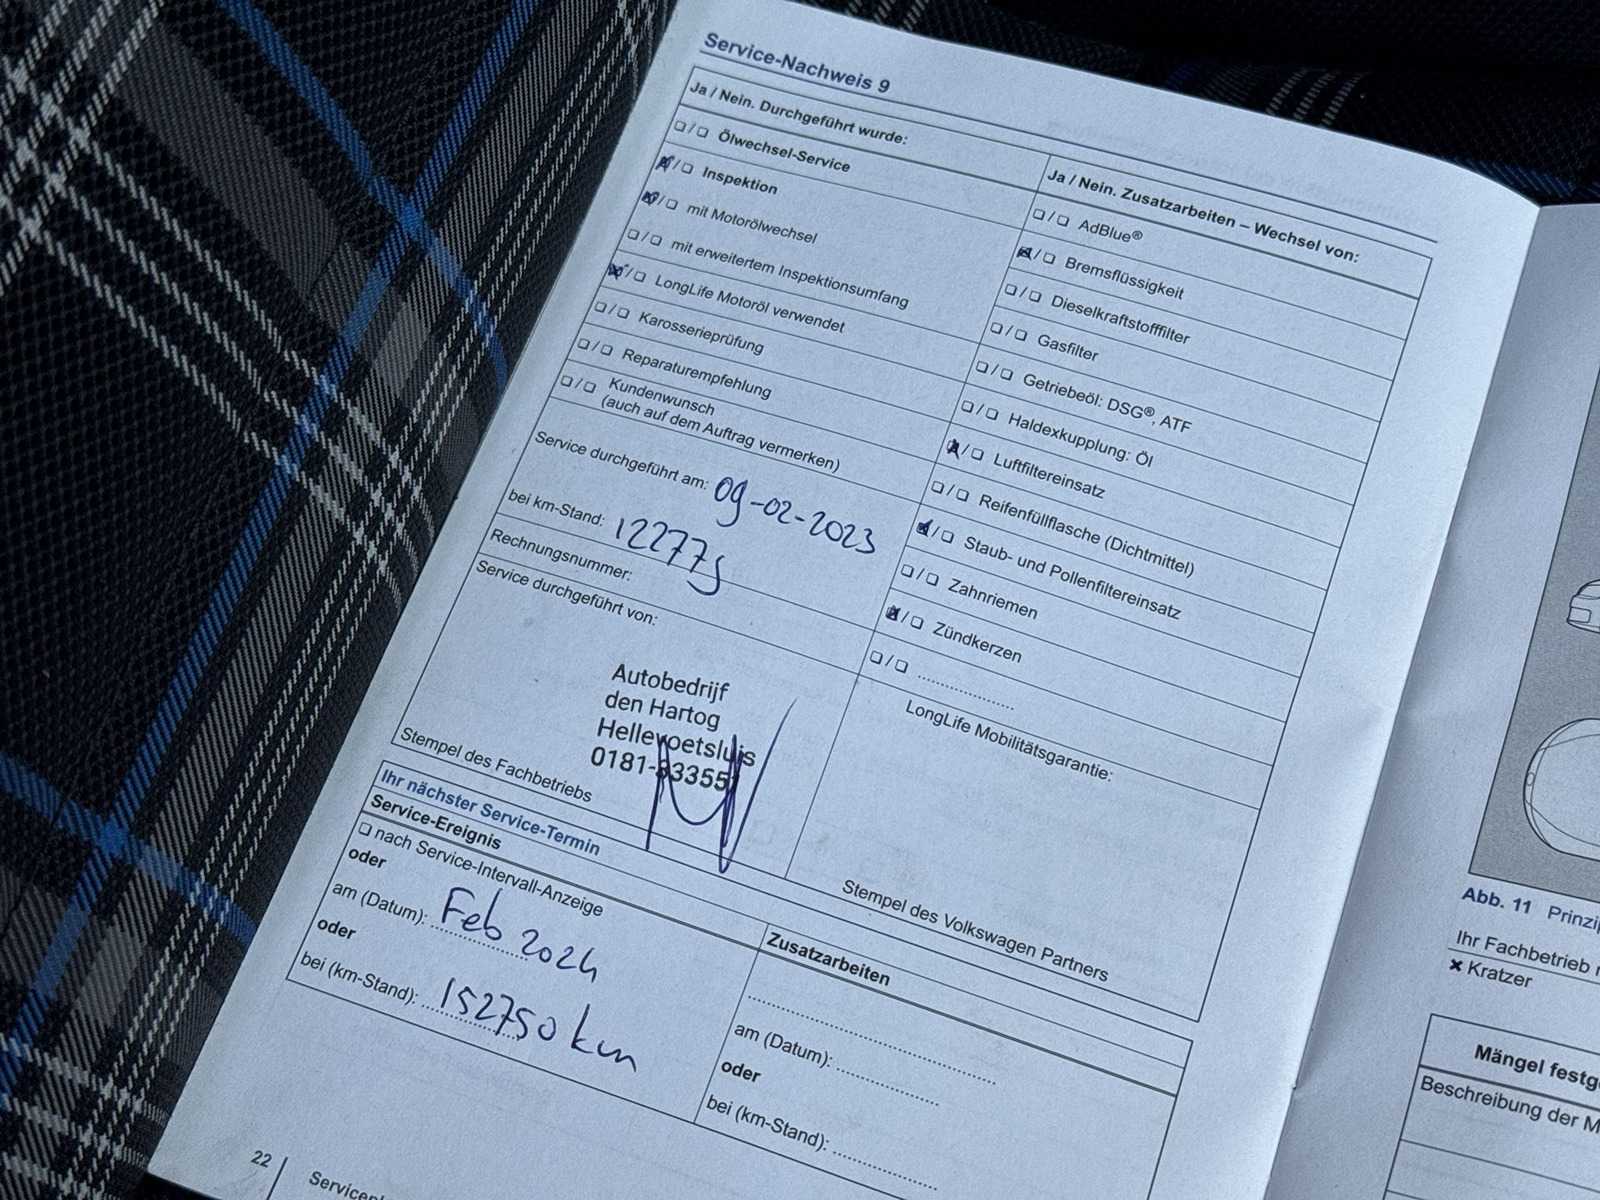 Service-Nachweis 9
Ja / Nein. Durchgeführt wurde:
❏ / ❏ Ölwechsel-Service
☒ / ❏ Inspektion
☒ / ❏ mit Motorölwechsel
❏ / ❏ mit erweitertem Inspektionsumfang
☒ / ❏ LongLife Motoröl verwendet
❏ / ❏ Karosserieprüfung
❏ / ❏ Reparaturempfehlung
❏ / ❏ Kundenwunsch
(auch auf dem Auftrag vermerken)
Service durchgeführt am: 09-02-2023
bei km-Stand:
Rechnungsnummer:
Service durchgeführt von:
Autobedrijf
den Hartog
Hellevoetsluis
Stempel des Fachbetriebs
Ja / Nein. Zusatzarbeiten – Wechsel von:
❏ / ❏ AdBlue®
☒ / ❏ Bremsflüssigkeit
❏ / ❏ Dieselkraftstofffilter
❏ / ❏ Gasfilter
❏ / ❏ Getriebeöl: DSG®, ATF
❏ / ❏ Haldexkupplung: Öl
☒ / ❏ Luftfiltereinsatz
❏ / ❏ Reifenfüllflasche (Dichtmittel)
☒ / ❏ Staub- und Pollenfiltereinsatz
❏ / ❏ Zahnriemen
☒ / ❏ Zündkerzen
❏ / ❏ ....................
LongLife Mobilitätsgarantie:
Stempel des Volkswagen Partners
Ihr nächster Service-Termin
Service-Ereignis
❏ nach Service-Intervall-Anzeige
oder
am (Datum): Feb 2024
oder
bei (km-Stand): 152750 km
Zusatzarbeiten
am (Datum):
oder
bei (km-Stand):
22
Abb. 11
Ihr Fachbetrieb
✖ Kratzer
Mängel
Beschreibung der